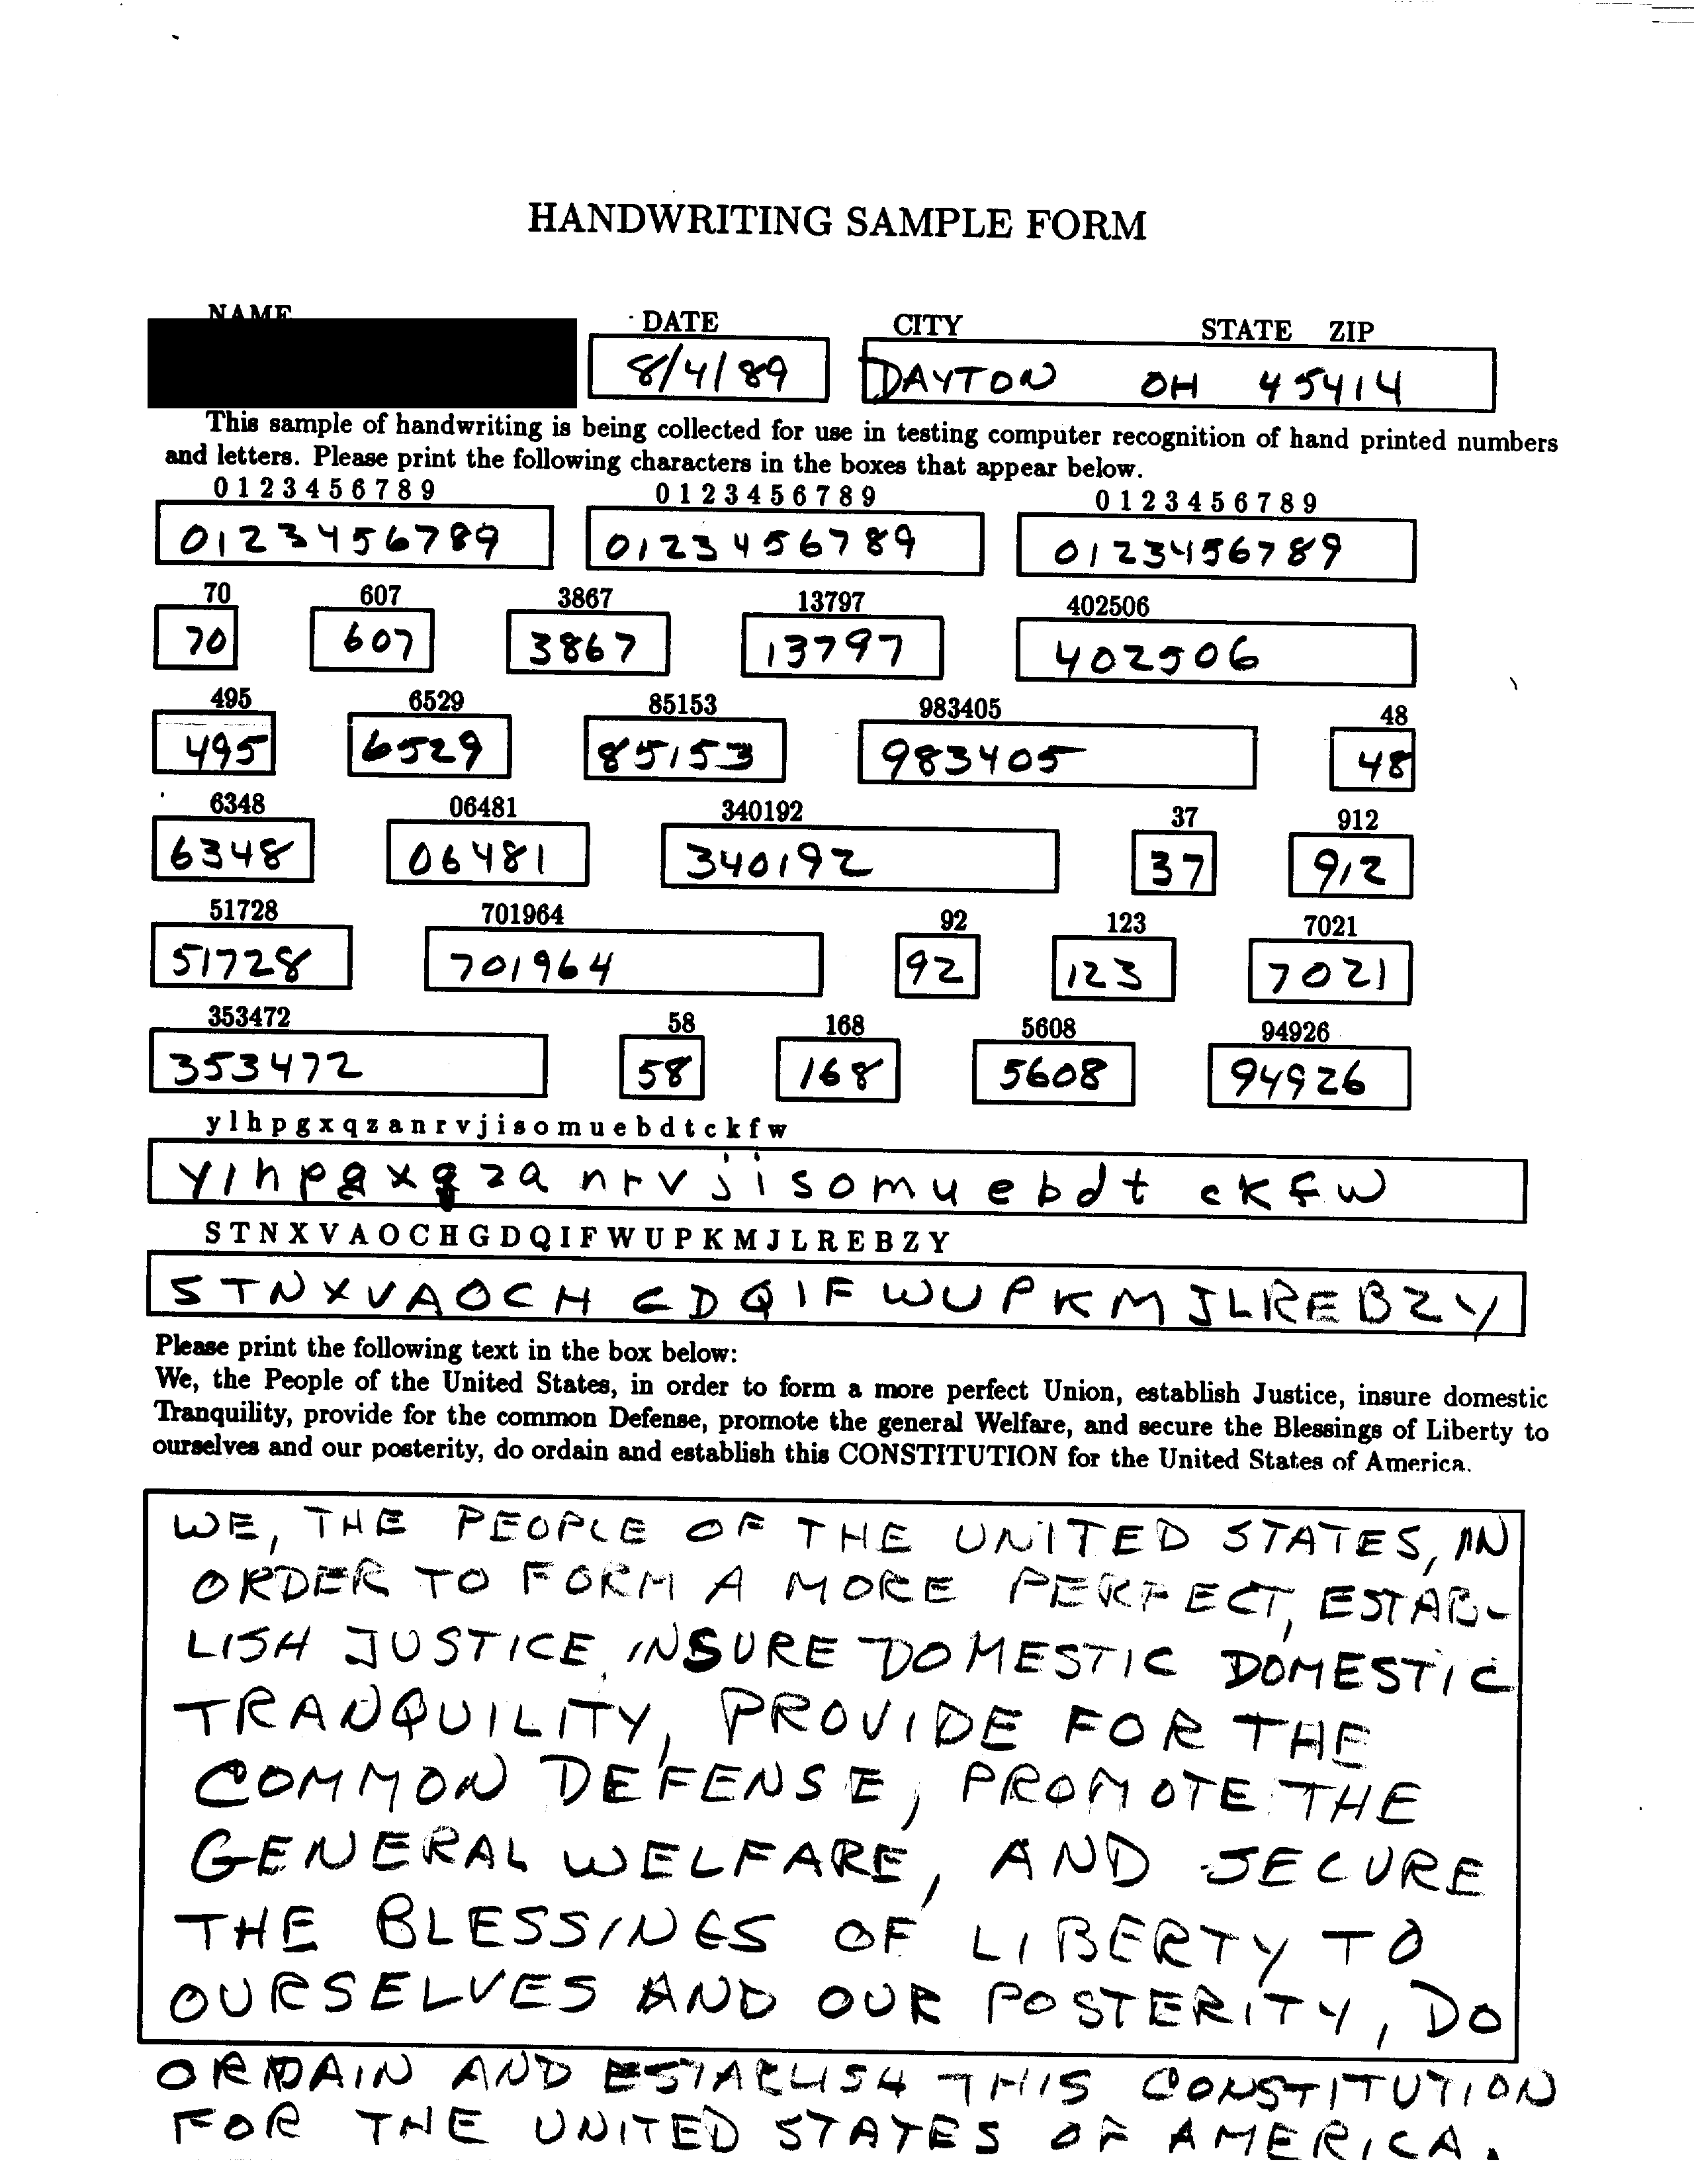 HANDWRITING SAMPLE FORM
NAME DATE CITY STATE ZIP
8/4/89 DAYTON OH 45414
This sample of handwriting is being collected for use in testing computer recognition of hand printed numbers
and letters. Please print the following characters in the boxes that appear below.
0 1 2 3 4 5 6 7 8 9 0 1 2 3 4 5 6 7 8 9 0 1 2 3 4 5 6 7 8 9
0123456789 0123456789 0123456789
70 607 3867 13797 402506
70 607 3867 13797 402506
495 6529 85153 983405 48
495 6529 85153 983405 48
6348 06481 340192 37 912
6348 06481 340192 37 912
51728 701964 92 123 7021
51728 701964 92 123 7021
353472 58 168 5608 94926
353472 58 168 5608 94926
y l h p g x q z a n r v j i s o m u e b d t c k f w
y l h p g x q z a n r v j i s o m u e b d t c k f w
S T N X V A O C H G D Q I F W U P K M J L R E B Z Y
S T N X V A O C H G D Q I F W U P K M J L R E B Z Y
Please print the following text in the box below:
We, the People of the United States, in order to form a more perfect Union, establish Justice, insure domestic
Tranquility, provide for the common Defense, promote the general Welfare, and secure the Blessings of Liberty to
ourselves and our posterity, do ordain and establish this CONSTITUTION for the United States of America.
WE, THE PEOPLE OF THE UNITED STATES, IN
ORDER TO FORM A MORE PERFECT, ESTAB-
LISH JUSTICE, INSURE DOMESTIC DOMESTIC
TRANQUILITY, PROVIDE FOR THE
COMMON DEFENSE, PROMOTE THE
GENERAL WELFARE, AND SECURE
THE BLESSINGS OF LIBERTY TO
OURSELVES AND OUR POSTERITY, DO
ORDAIN AND ESTABLISH THIS CONSTITUTION
FOR THE UNITED STATES OF AMERICA.